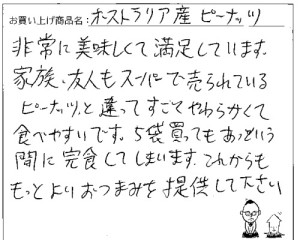 お買い上げ商品名:オーストラリア産 ピーナッツ
非常に美味しくて満足しています。
家族、友人もスーパーで売られている
ピーナッツと違ってすごくやわらかくて
食べやすいです。5袋買ってもあっという
間に完食してしまいます。これからも
もっとよりおつまみを提供して下さい